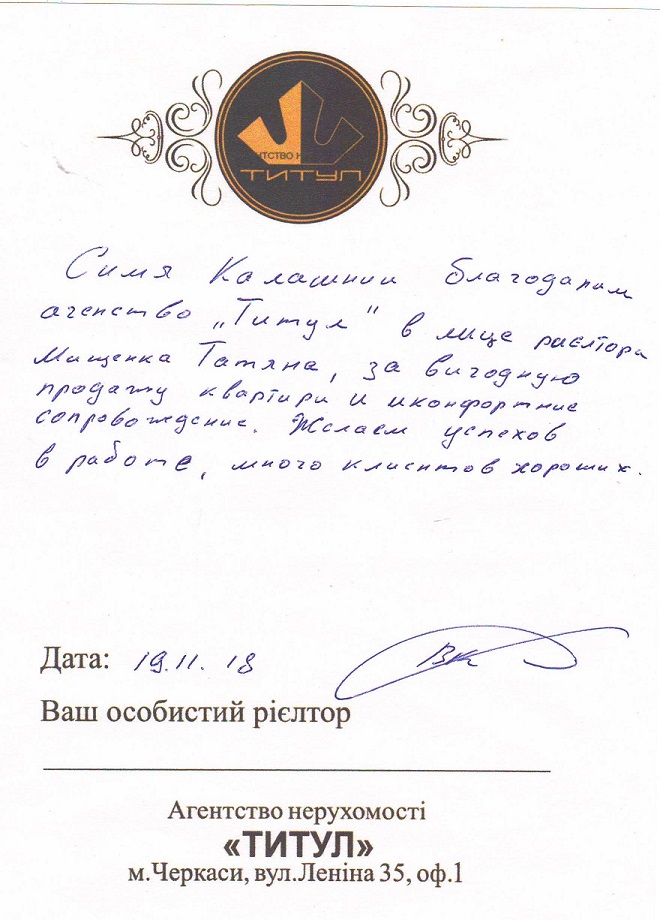 АГЕНТСТВО Н
ТИТУЛ
Симя Калашник благодарим
агенство „Титул" в лице риєлтора
Мищенка Татяна, за вигодную
продажу квартири и икомфортние
сопровождение. Желаем успехов
в работе, много клиентов хороших.
Дата: 19.11.18
ВК
Ваш особистий рієлтор
Агентство нерухомості
«ТИТУЛ»
м.Черкаси, вул.Леніна 35, оф.1